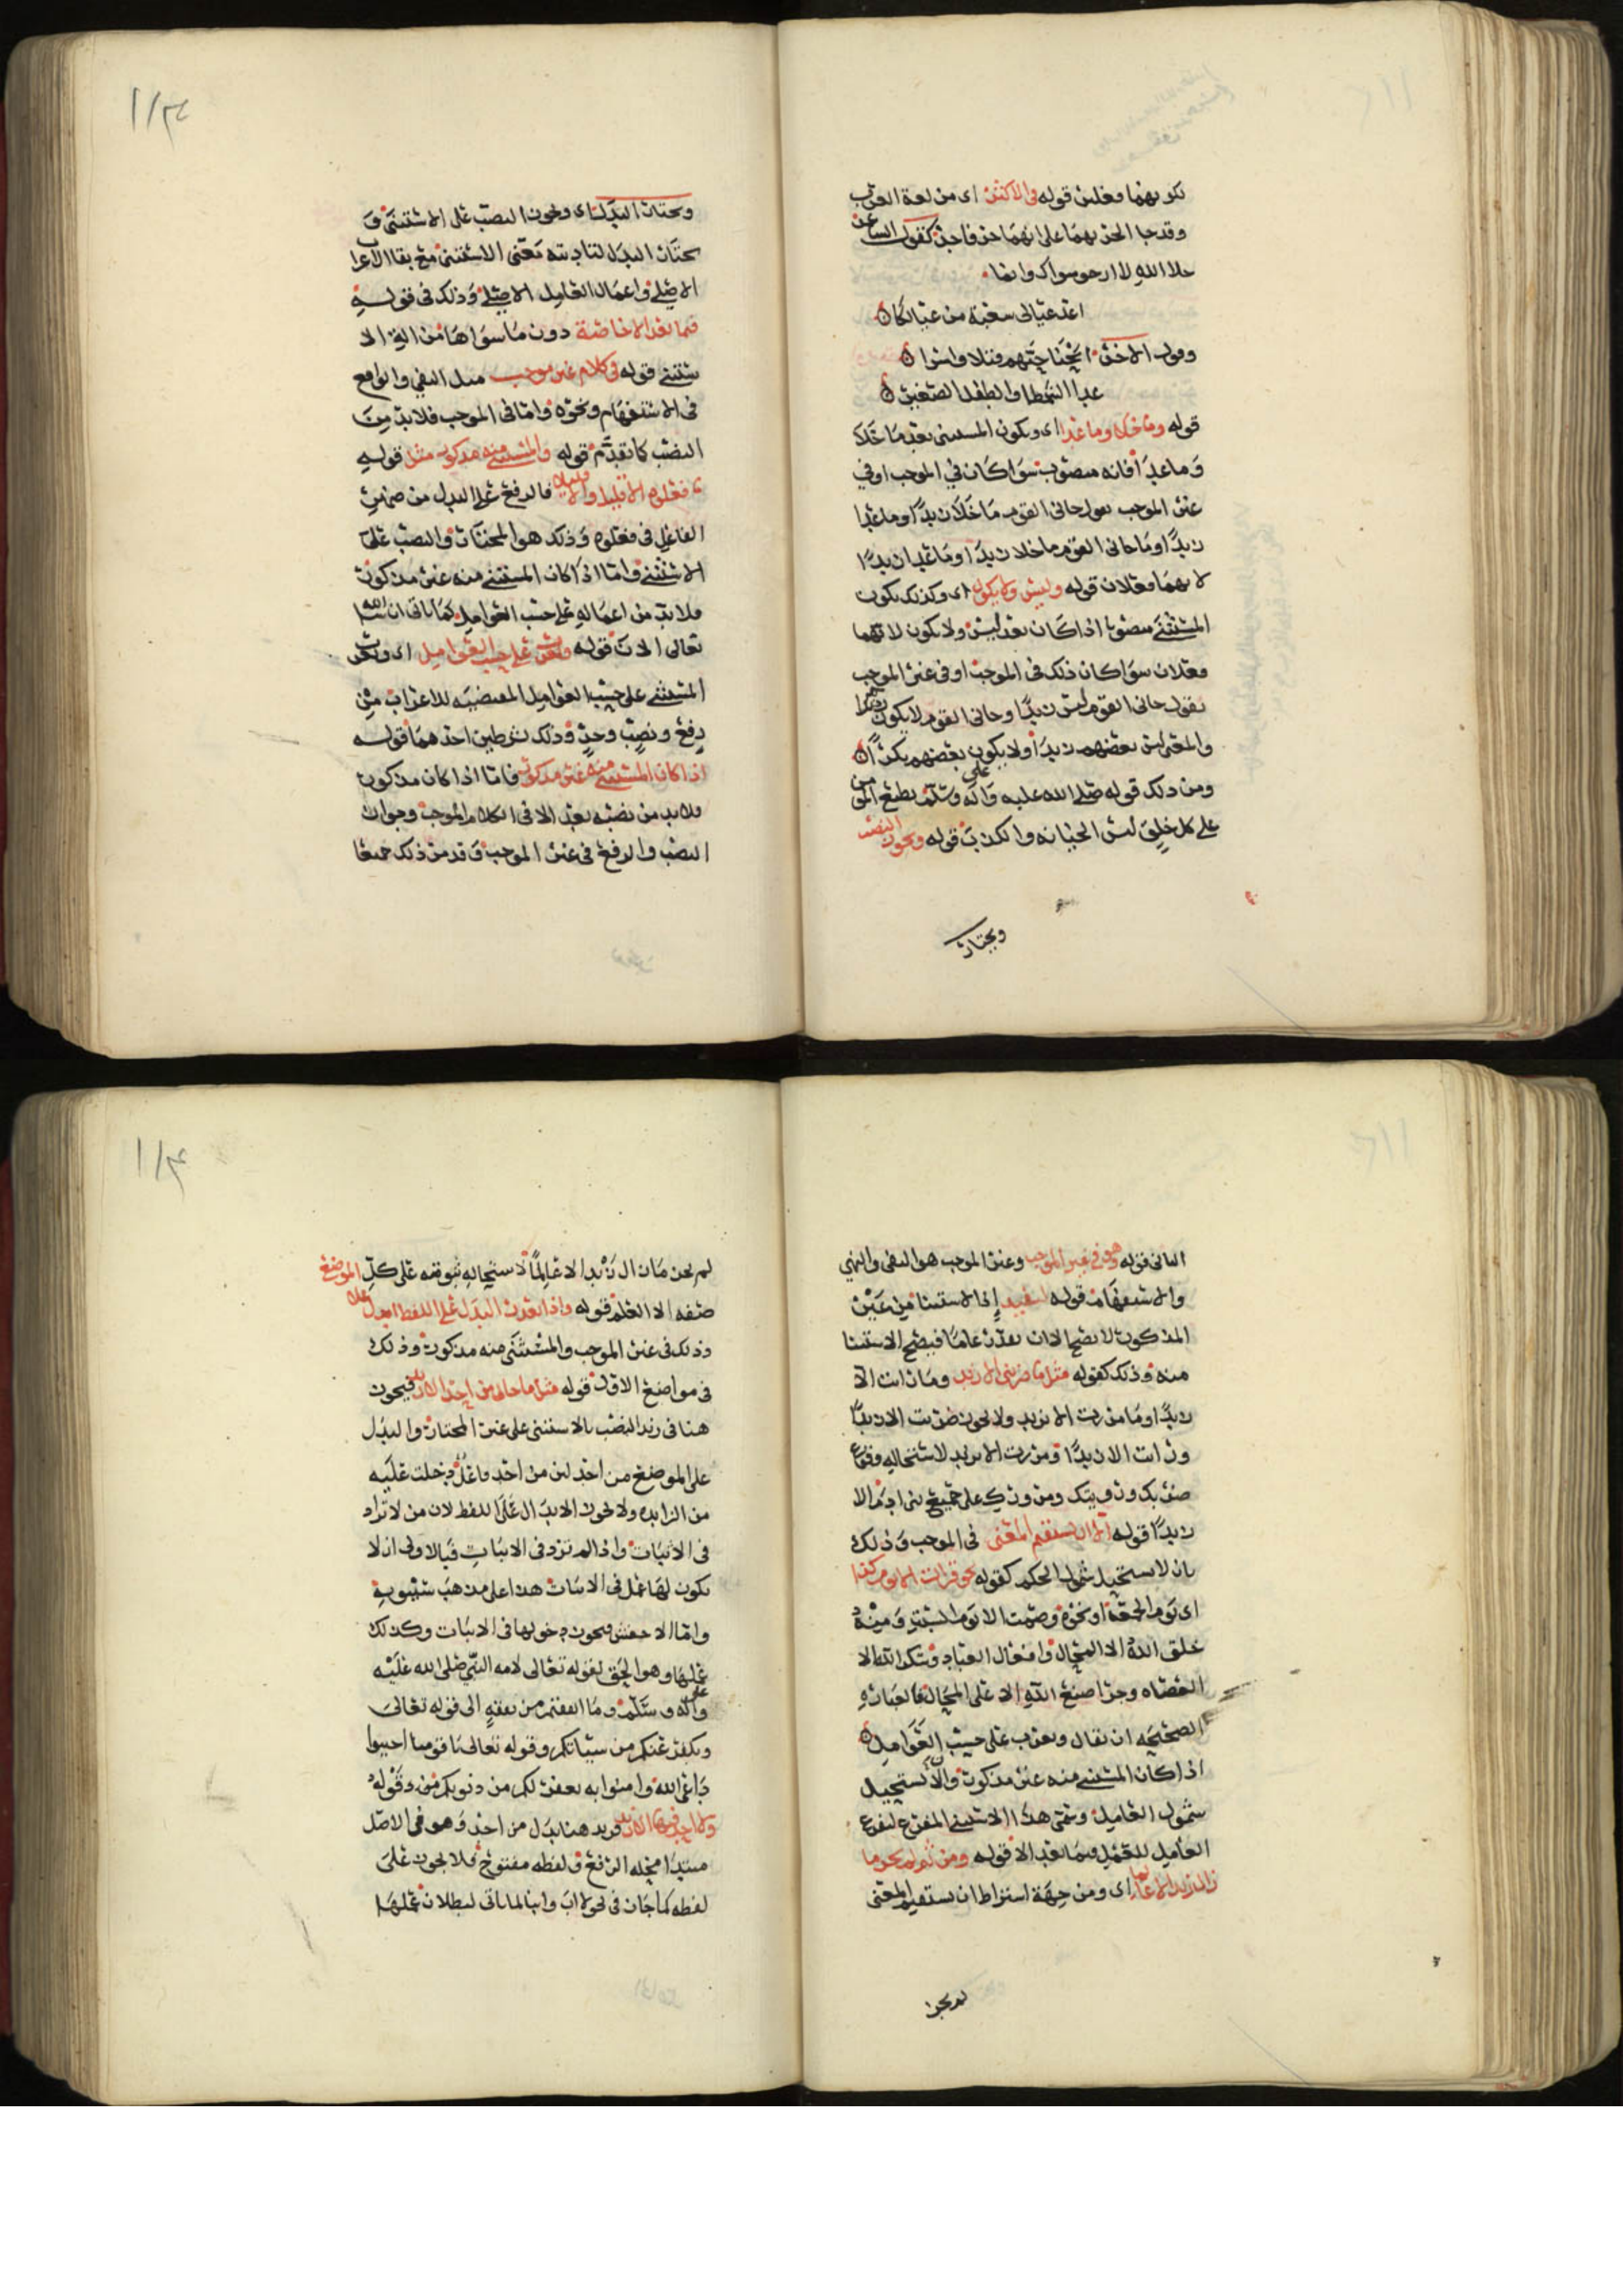 بكونهما فعلين قوله في الاكثر اى من لغة العرب
وقد جا الجر بهما على انهما حرفا جر كقول الشاعر
خلا الله لا ارجو سواك وانما
اعد عيالى شعبة من عيالكا
وقول الاخر ابحنا حيهم قتلا واسرا
عدا الشمطا والطفل الصغير
قوله وما خلا وما عدا اى ويكون المستثنى بعد ما خلا
وما عدا فانه منصوب سوا كان في الموجب او في
غير الموجب تقول جانى القوم ما خلا زيدًا وما عدا
زيدًا وما جانى القوم ما خلا زيدًا وما عدا زيدًا
لانهما فعلان قوله وليس ولا يكون اى وكذلك يكون
المستثنى منصوبا اذا كان بعد ليس ولا يكون لانهما
فعلان سوا كان ذلك في الموجب او في غير الموجب
تقول جانى القوم ليس زيدًا وجانى القوم لا يكون
والمعنى ليس بعضهم زيدًا ولا يكون بعضهم بكرًا
ومن ذلك قوله صلى الله عليه وعلى آله وسلم يطبع المؤمن
على كل خلق ليس الخيانه والكذب قوله ويجوز النصب
ويختار
ويختار البدل اى ويجوز النصب على الاستثنى و
يختار البدل لتاديته معنى الاستثنى مع بقا الاعراب
الاصلى واعمال العامل الاصلى وذلك في قوله
فيما بعد الا خاصة دون ما سواها من الية الا
ستثنى قوله في كلام غير موجب مثل النفي والواقع
في الاستفهام ونحوه واما في الموجب فلا بد من
النصب كما تقدم قوله والمستثنى منه مذكور مثل قوله
ما فعلوه الا قليل والا قليلا فالرفع على البدل من ضمير
الفاعل في فعلوه وذلك هو المختار والنصب على
الاستثنى واما اذا كان المستثنى منه غير مذكور
فلا بد من اعماله على حسب العوامل كما ياتى ان شا الله
تعالى الان قوله ويعرب على حسب العوامل اى ويعرب
المستثنى على حسب العوامل المقتضيه للاعراب من
رفع ونصب وجر وذلك بشرطين احدهما قوله
اذا كان المستثنى منه غير مذكور فاما اذا كان مذكورا
فلا بد من نصبه بعد الا في الكلام الموجب وجواز
النصب والرفع في غير الموجب وقد مر ذلك جميعا
الثانى قوله وهو في غير الموجب وغير الموجب هو النفى والنهي
والاستفهام قوله ليفيد اذ الاستثنا من غير
المذكور لا يصح الا ان يقدر عاما فيصح الاستثنا
منه وذلك كقوله مثل ما ضربنى الا زيد وما رايت الا
زيدًا وما مررت الا بزيد ولا يجوز ضربت الا زيدًا
ورايت الا زيدًا ومررت الا بزيد لاستحاله وقوع
ضربك ورويتك ومرورك على جميع بنى ادم الا
زيدًا قوله الا ان يستقيم المعنى في الموجب وذلك
بان لا يستحيل شمول الحكم كقوله نحو قرات الا يوم كذا
اى يوم الجمعة او نحوه وصمت الا يوم السبت ومنه
خلق الله الا المحال وافعال العباد
الصحيحه ان يقال ويعرب على حسب العوامل
اذا كان المستثنى منه غير مذكور والا يستحيل
شمول العامل وسمى هذا الاستثنى المفرغ لتفرغ
العامل للعمل فيما بعد الا قوله ومن ثم لم يجز ما
زال زيد الا عالما اى ومن جهة اشتراط ان يستقيم المعنى
لم يجز
لم يجز ما زال زيد الا عالمًا لاستحاله ثبوته على كل
صفه الا العلم قوله واذا تعذر البدل على اللفظ ابدل على الموضع
وذلك في غير الموجب والمستثنى منه مذكور وذلك
في مواضع الاول قوله مثل ما جانى من احد الا زيد فيجوز
هنا في زيد النصب بالاستثنى على غير المختار والبدل
على الموضع من احد لان من احد فاعل دخلت عليه
من الزايده ولا يجوز الابدال على اللفظ لان من لا تزاد
في الاثبات واذا لم تزد في الاثبات فبالاولى ان لا
يكون لها عمل في الاثبات هذا على مذهب سيبويه
واما الاخفش فيجوز دخولها في الاثبات وكذلك
عملها وهو الحق لقوله تعالى لامه النبى صلى الله عليه
وعلى آله وسلم وما انفقتم من نفقه الى قوله تعالى
ويكفر عنكم من سيئاتكم وقوله تعالى يا قومنا اجيبوا
داعى الله وامنوا به يغفر لكم من ذنوبكم قوله
ولا احد فيها الا زيد فزيد هنا بدل من احد وهو في الاصل
مبتدا محله الرفع ولفظه مفتوح فلا يجوز على
لفظه كما جاز في نحو لا اب وابنا لما ياتى لبطلان عملها